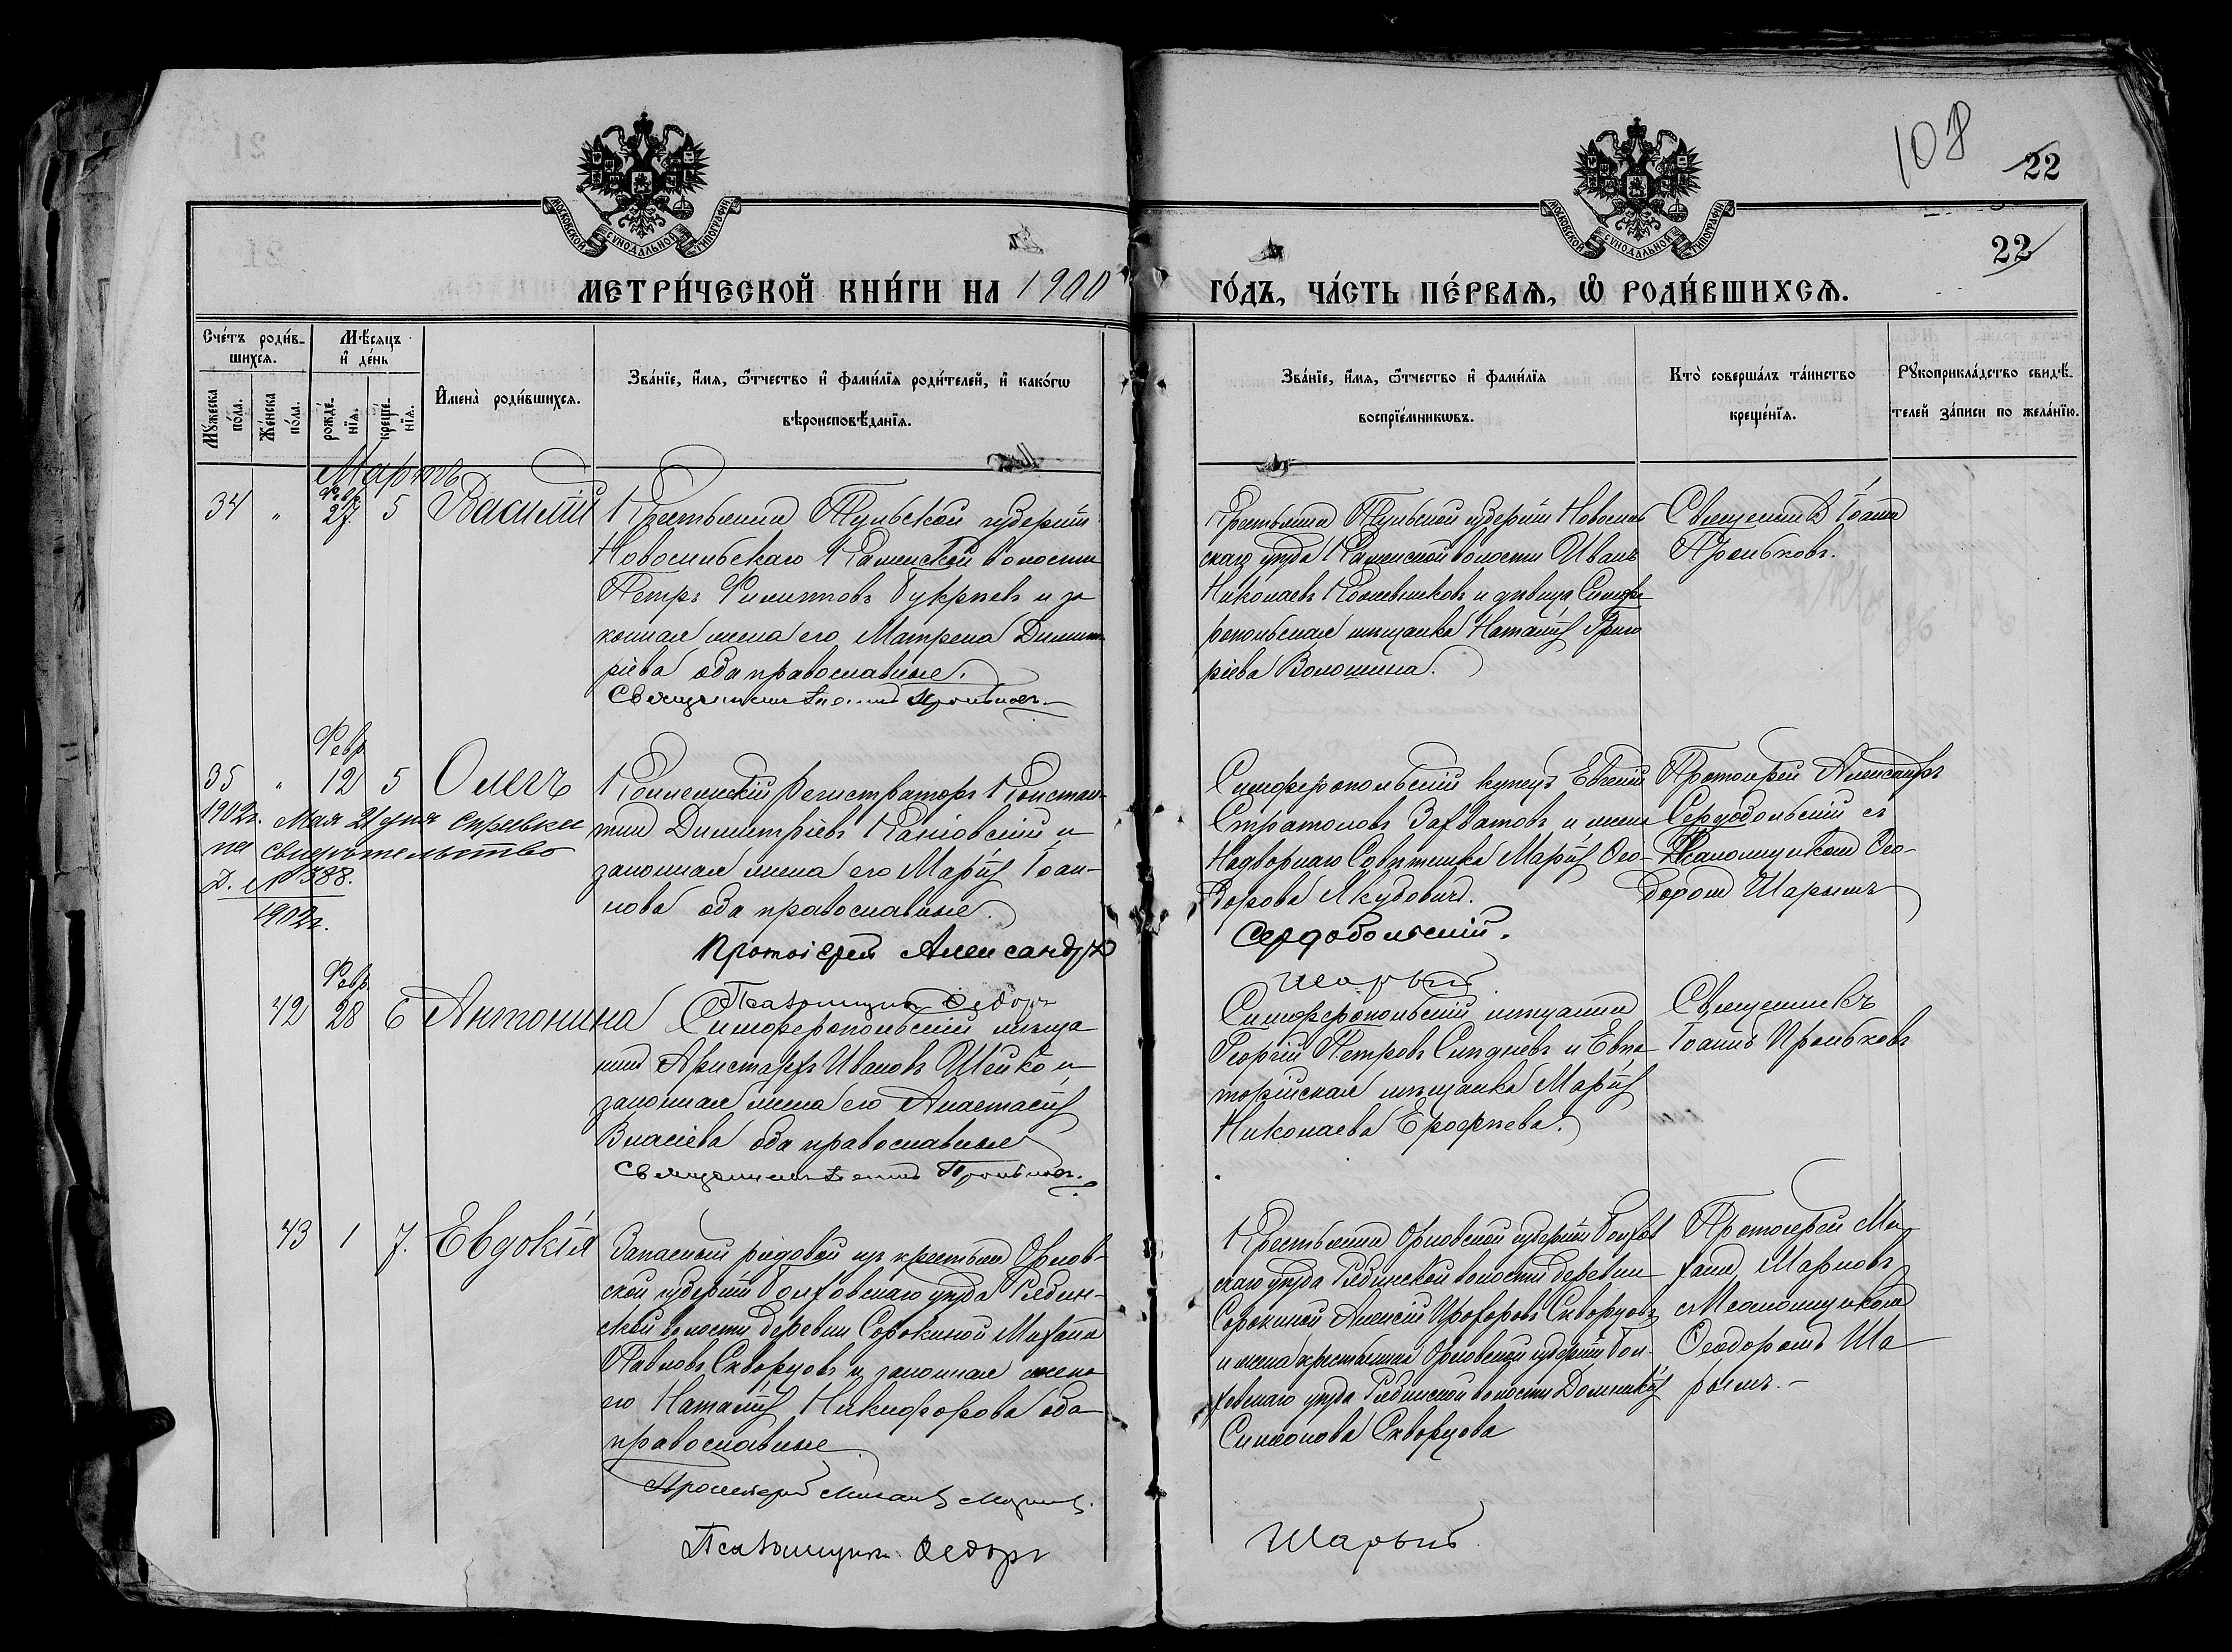 108
22
22
МОСКОВСКОЙ СѴНОДАЛЬНОЙ ТИПОГРАФІИ
МОСКОВСКОЙ СѴНОДАЛЬНОЙ ТИПОГРАФІИ
МЕТРИ́ЧЕСКОЙ КНИ́ГИ НА 1900
ГО́ДЪ, ЧА́СТЬ ПЕ́РВАЯ, Ѽ РОДИ́ВШИХСЯ.
Сче́тъ роди́в-
шихся.
Мѣ́сяцъ
и҆ де́нь
Му́жеска
по́ла.
Же́нска
по́ла.
рожде́-
нія.
креще́-
нія.
И҆мена̀ роди́вшихся.
Зва́нїе, и҆́мя, ѻ҆́тчество и҆ фами́лїя роди́телей, и҆ како́гѡ
вѣроисповѣ́данїя.
Зва́нїе, и҆́мя, ѻ҆́тчество и҆ фами́лїя
воспрїе́мникѡвъ.
Кто̀ соверша́лъ та́инство
креще́нїя.
Рукоприкла́дство свидѣ́-
телей за́писи по жела́нїю.
Мартъ
34 " Февр. 27. 5 Василій
Крестьянинъ Тульской губерніи
Новосильскаго Каменской волости
Петръ Филипповъ Букрѣевъ и за
конная жена его Матрена Димит
ріева оба православные.
Священникъ Іоаннъ Прольковъ
Крестьянинъ Тульской губерніи Новосиль
скаго уѣзда Каменской волости Иванъ
Николаевъ Кожевниковъ и дѣвица Симфе
ропольская мѣщанка Наталія Григо
ріева Волошина.
Священникъ Іоаннъ
Прольковъ.
Февр
35 " 12 5 Олегъ
1902г. Мая 21 дня справка
на свидѣтельство
Д. № 388.
1902г.
Коллежскій Регистраторъ Констан-
тинъ Димитріевъ и
законная жена его Марія Іоан-
нова оба православные.
Протоіерей Александръ
Псаломщикъ Ѳедоръ
Симферопольскій купецъ Евгеній
Стратоновъ Захватовъ и жена
Надворнаго Совѣтника Марія Ѳео-
дорова Якубовичъ.
Сердобольскій.
Шарый
Протоіерей Александръ
Сердобольскій съ
Псаломщикомъ Ѳео-
доромъ Шарымъ
Февр
42 28 6 Антонина
Симферопольскій мѣща
нинъ Аристархъ Ивановъ Шейко и
законная жена его Анастасія
Власіева оба православные
Священникъ Іоаннъ Прольковъ.
Симферопольскій мѣщанинъ
Георгій Петровъ Сѣдневъ и Евпа
торійская мѣщанка Марія
Николаева Ерофѣева.
Священникъ
Іоаннъ Прольковъ
43 1 7. Евдокія
Запасный рядовой изъ крестьянъ Орлов-
ской губерніи Болховскаго уѣзда
волости деревни Сорокиной Михаилъ
Павловъ Скворцовъ и законная жена
его Наталія Никифорова оба
православные
Протоіерей Михаилъ Марковъ.
Псаломщикъ Ѳедоръ
Крестьянинъ Орловской губерніи Болхов
скаго уѣзда волости деревни
Сорокиной Алексій Скворцовъ
и жена крестьянина Орловской губерніи Бол-
ховскаго уѣзда волости Домникія
Симонова Скворцова
Шарый
Протоіерей Ми
хаилъ Марковъ
съ Псаломщикомъ
Ѳеодоромъ Ша
рымъ.-